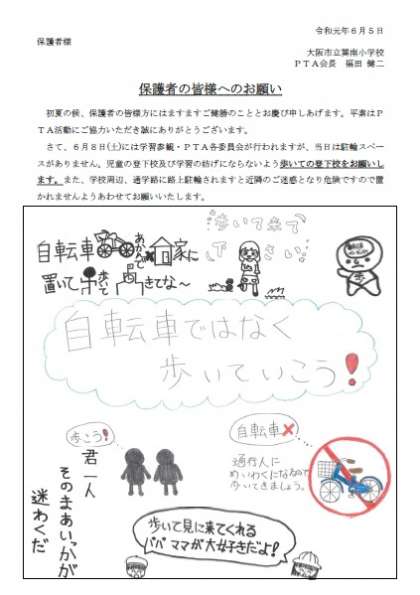 令和元年６月５日
保護者様
大阪市立巽南小学校
ＰＴＡ会長　福田　健二
保護者の皆様へのお願い
初夏の候、保護者の皆様方にはますますご健勝のこととお慶び申しあげます。平素はＰ
ＴＡ活動にご協力いただき誠にありがとうございます。
さて、６月８日(土)には学習参観・ＰＴＡ各委員会が行われますが、当日は駐輪スペー
スがありません。児童の登下校及び学習の妨げにならないよう歩いての登下校をお願いし
ます。また、学校周辺、通学路に路上駐輪されますと近隣のご迷惑となり危険ですので置
かれませんようあわせてお願いいたします。
歩いて来て
下さい
自転車
あかんで
家に
置いて
歩いて
きてな～
自転車ではなく
歩いていこう！
歩こう!
自転車✕
通行人に
めいわくになるので
歩いてきましょう。
君一人
そのまあいっかが
迷わくだ
歩いて見に来てくれる
パパママが大好きだよ!